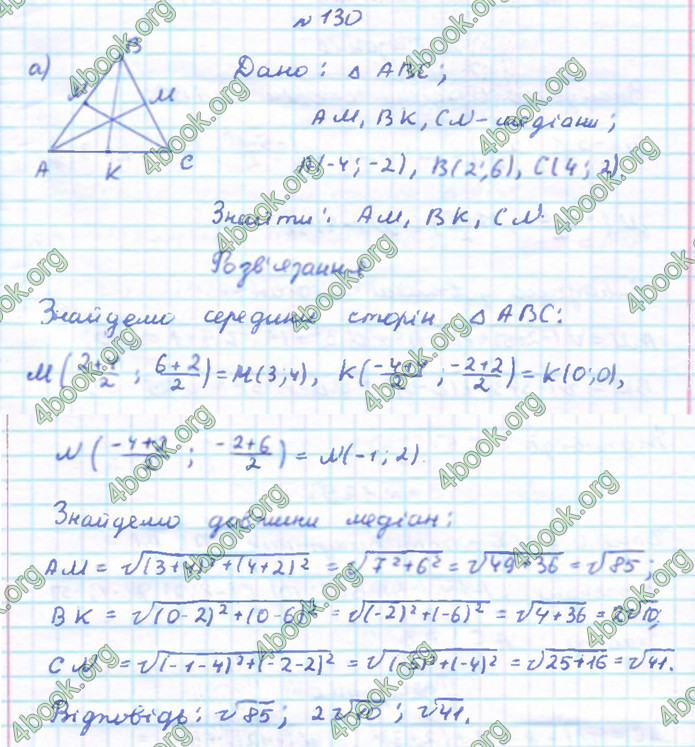 №130
а)
B
Дано: △ ABC;
N M
AM, BK, CN - медіани;
A K C
A(-4; -2), B(2; 6), C(4; 2)
Знайти: AM, BK, CN.
Розв'язання
Знайдемо середини сторін △ ABC:
M(2+4/2 ; 6+2/2) = M(3; 4), K(-4+4/2 ; -2+2/2) = K(0; 0),
N(-4+2/2 ; -2+6/2) = N(-1; 2).
Знайдемо довжини медіан:
AM = √(3+4)²+(4+2)² = √7²+6² = √49+36 = √85;
BK = √(0-2)²+(0-6)² = √(-2)²+(-6)² = √4+36 = 2√10;
CN = √(-1-4)²+(-2-2)² = √(-5)²+(-4)² = √25+16 = √41.
Відповідь: √85; 2√10; √41.
4book.org